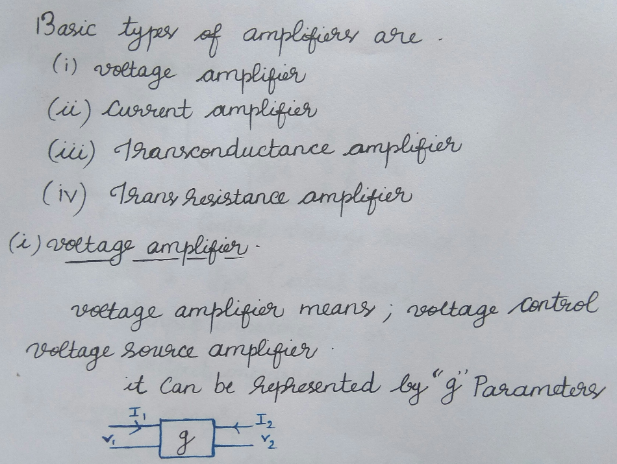 Basic types of amplifiers are.
(i) voltage amplifier
(ii) Current amplifier
(iii) Transconductance amplifier
(iv) Trans resistance amplifier
(i) voltage amplifier.
voltage amplifier means; voltage control
voltage source amplifier.
it can be represented by "g" Parameters
I1 I2
V1 g V2